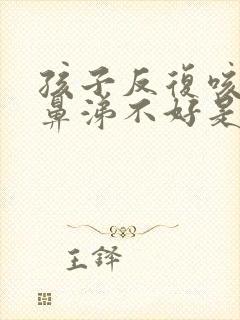 孩子反復咳
鼻涕不好是
王鐸